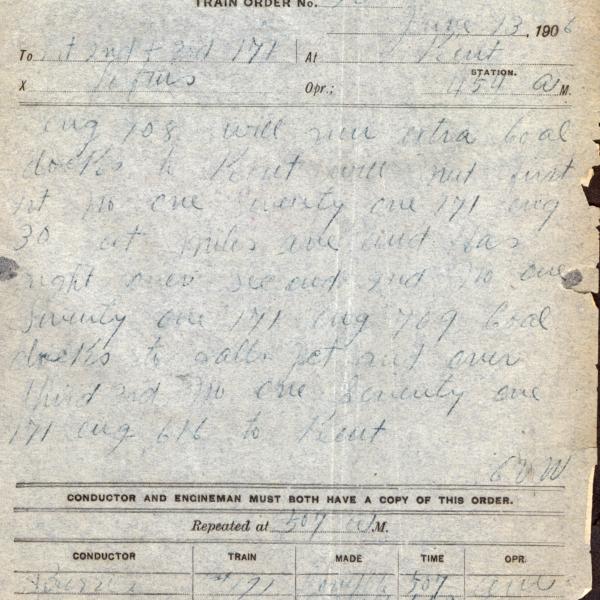 TRAIN ORDER No.
June 13, 1906
To 1st 2nd + 3rd 171 At Kent
X STATION.
Opr.; 454 A M.
Eng 708 will run extra Coal
docks to Kent will meet first
1st No one Seventy one 171 Eng
30 at miles ave and has
right over second 2nd No one
Seventy one 171 Eng 769 Coal
docks to Falls Jct and over
third 3rd No one Seventy one
171 Eng 616 to Kent
CONDUCTOR AND ENGINEMAN MUST BOTH HAVE A COPY OF THIS ORDER.
Repeated at 507 A M.
CONDUCTOR TRAIN MADE TIME OPR.
1st 171 507